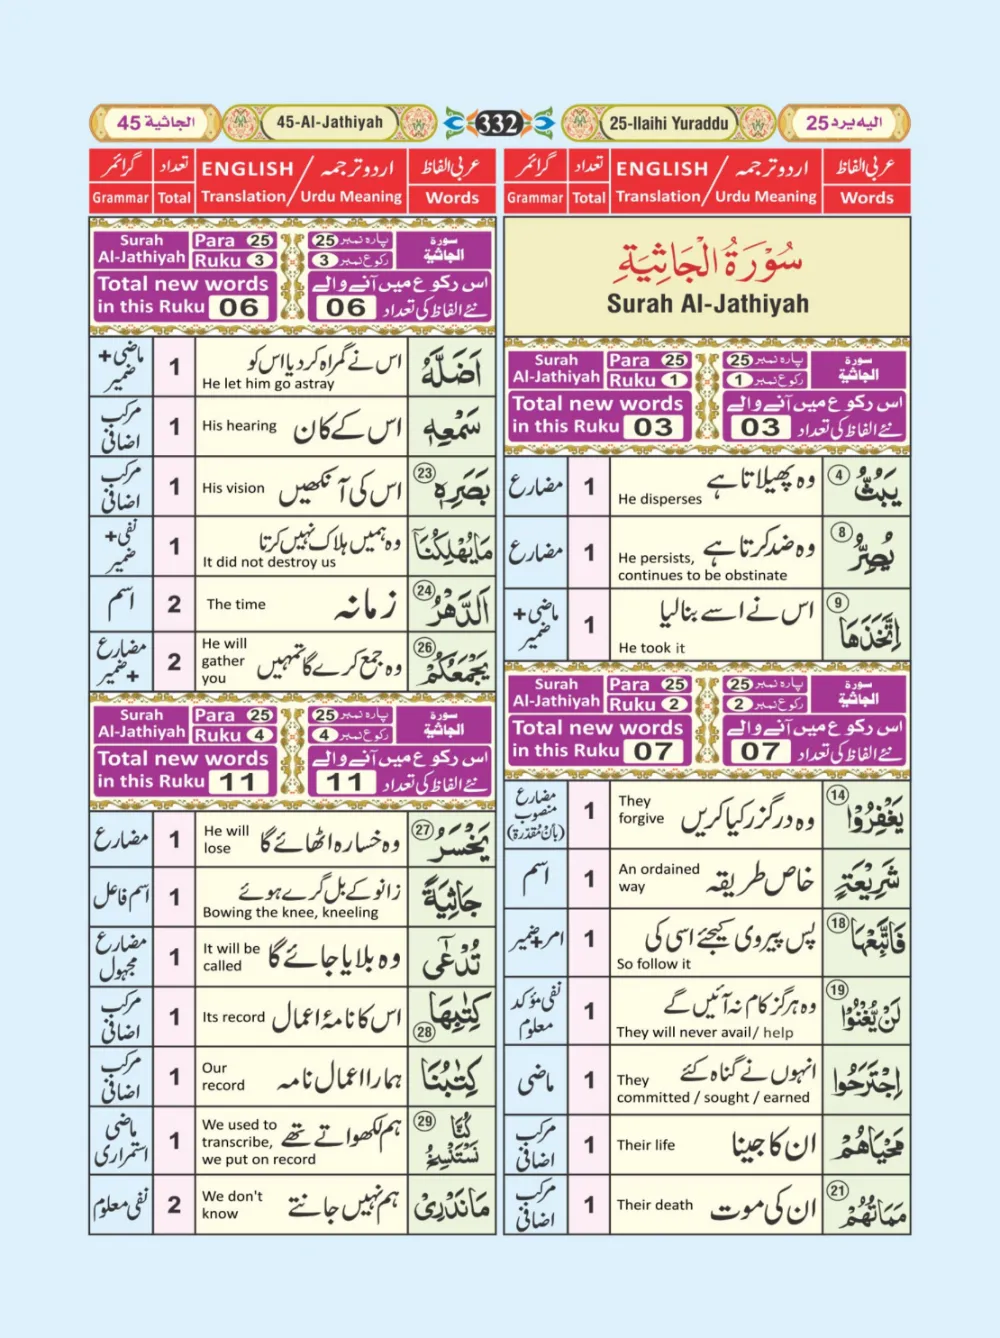 الجاثية 45
45-Al-Jathiyah
332
25-Ilaihi Yuraddu
اليه يرد 25
گرائمر تعداد ENGLISH / اردو ترجمہ عربی الفاظ
Grammar Total Translation / Urdu Meaning Words
سُوْرَةُ الْجَاثِيَةِ
Surah Al-Jathiyah
Surah Al-Jathiyah Para 25 Ruku 1 پارہ نمبر 25 رکوع نمبر 1 سورۃ الجاثية
Total new words اس رکوع میں آنے والے
in this Ruku 03 نئے الفاظ کی تعداد 03
يَبُثُّ 4 وہ پھیلاتا ہے He disperses 1 مضارع
يُصِرُّ 8 وہ ضد کرتا ہے He persists, continues to be obstinate 1 مضارع
اِتَّخَذَهَا 9 اس نے اسے بنالیا He took it 1 ماضی + ضمیر
Surah Al-Jathiyah Para 25 Ruku 2 پارہ نمبر 25 رکوع نمبر 2 سورۃ الجاثية
Total new words اس رکوع میں آنے والے
in this Ruku 07 نئے الفاظ کی تعداد 07
يَغْفِرُوْا 14 وہ درگزر کیا کریں They forgive 1 مضارع منصوب (بان مقدرة)
شَرِيْعَةٍ خاص طریقہ An ordained way 1 اسم
فَاتَّبِعْهَا 18 پس پیروی کیجئے اسی کی So follow it 1 امر+ضمیر
لَنْ يُّغْنُوْا 19 وہ ہرگز کام نہ آئیں گے They will never avail/ help 1 نفی مؤکد معلوم
اِجْتَرَحُوا انہوں نے گناہ کئے They committed / sought / earned 1 ماضی
مَحْيَاهُمْ ان کا جینا Their life 1 مرکب اضافی
مَمَاتُهُمْ 21 ان کی موت Their death 1 مرکب اضافی
گرائمر تعداد ENGLISH / اردو ترجمہ عربی الفاظ
Grammar Total Translation / Urdu Meaning Words
Surah Al-Jathiyah Para 25 Ruku 3 پارہ نمبر 25 رکوع نمبر 3 سورۃ الجاثية
Total new words اس رکوع میں آنے والے
in this Ruku 06 نئے الفاظ کی تعداد 06
اَضَلَّهُ اس نے گمراہ کر دیا اس کو He let him go astray 1 ماضی + ضمیر
سَمْعِهٖ اس کے کان His hearing 1 مرکب اضافی
بَصَرِهٖ 23 اس کی آنکھیں His vision 1 مرکب اضافی
مَايُهْلِكُنَآ وہ ہمیں ہلاک نہیں کرتا It did not destroy us 1 نفی + ضمیر
اَلدَّهْرُ 24 زمانہ The time 2 اسم
يَجْمَعُكُمْ 26 وہ جمع کرے گا تمہیں He will gather you 2 مضارع + ضمیر
Surah Al-Jathiyah Para 25 Ruku 4 پارہ نمبر 25 رکوع نمبر 4 سورۃ الجاثية
Total new words اس رکوع میں آنے والے
in this Ruku 11 نئے الفاظ کی تعداد 11
يَخْسَرُ 27 وہ خسارہ اٹھائے گا He will lose 1 مضارع
جَاثِيَةً زانو کے بل گرے ہوئے Bowing the knee, kneeling 1 اسم فاعل
تُدْعٰٓى وہ بلایا جائے گا It will be called 1 مضارع مجہول
كِتٰبِهَا 28 اس کا نامۂ اعمال Its record 1 مرکب اضافی
كِتٰبُنَا ہمارا اعمال نامہ Our record 1 مرکب اضافی
كُنَّا نَسْتَنْسِخُ 29 ہم لکھواتے تھے We used to transcribe, we put on record 1 ماضی استمراری
مَانَدْرِىْ ہم نہیں جانتے We don't know 2 نفی معلوم